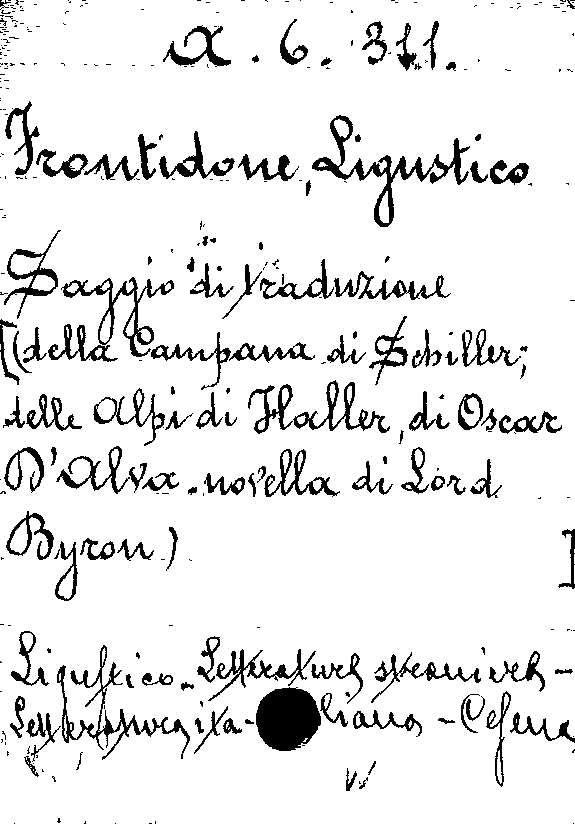 A. 6. 311.
Frontidone, Ligustico
Saggio di traduzione
[(della Campana di Schiller;
delle Alpi di Haller, di Oscar
D'Alva - novella di Lord
Byron) ]
Ligustico - Letteratura straniera -
Letteratura ita-liana - Cesena